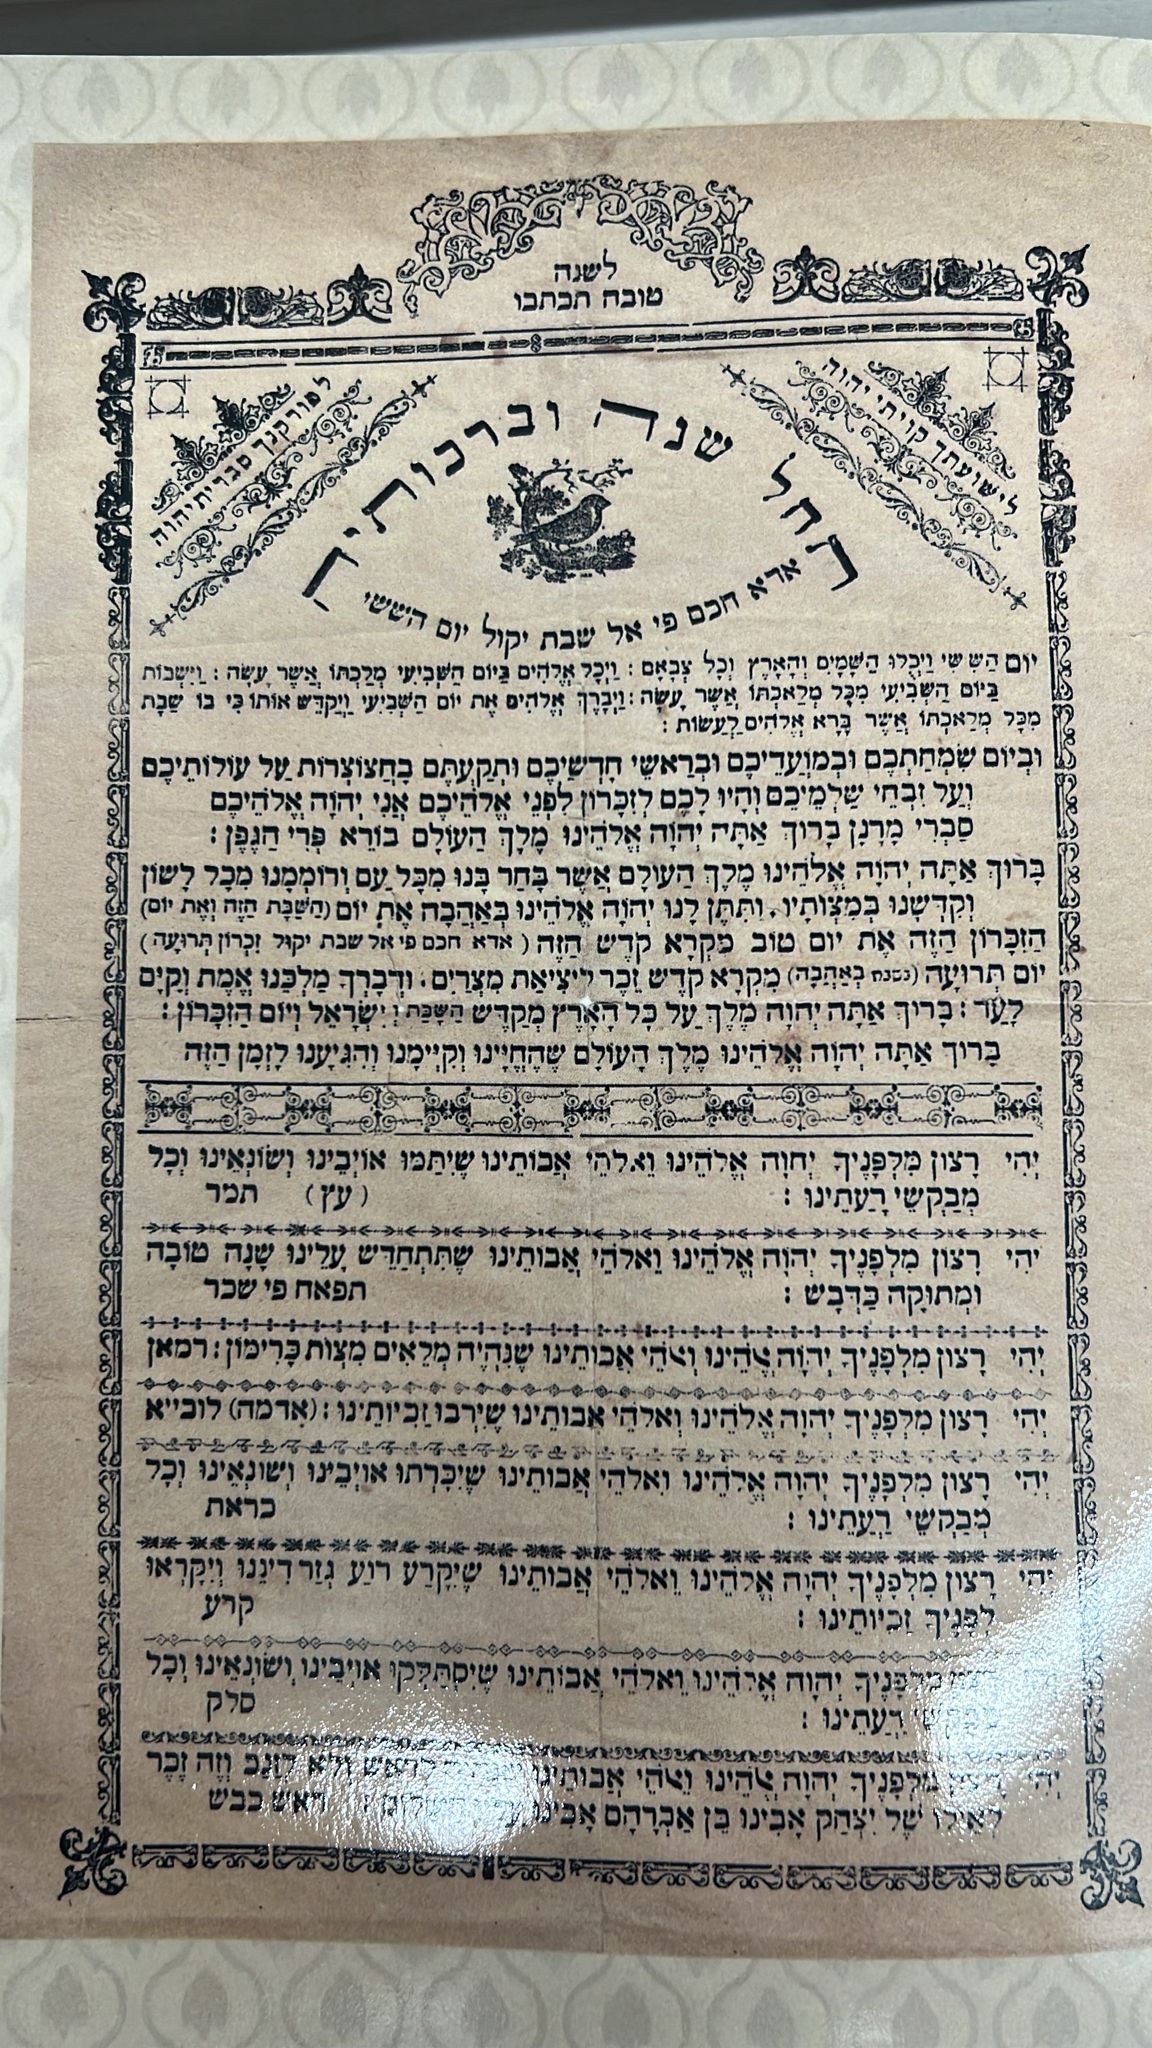 לשנה
טובה תכתבו
לישועתך קויתי יהוה
לפורקנך סברית יהוה
תחל שנה וברכותיה
אדא חכם פי אל שבת יקול יום הששי
יוֹם הַשִּשִּׁי וַיְכֻלּוּ הַשָּׁמַיִם וְהָאָרֶץ וְכָל צְבָאָם : וַיְכַל אֱלֹהִים בַּיּוֹם הַשְּׁבִיעִי מְלַכְתּוֹ אֲשֶׁר עָשָׂה : וַיִּשְׁבּוֹת
בַּיּוֹם הַשְּׁבִיעִי מִכָּל מְלַאכְתּוֹ אֲשֶׁר עָשָׂה : וַיְבָרֶךְ אֱלֹהִים אֶת יוֹם הַשְּׁבִיעִי וַיְקַדֵּשׁ אוֹתוֹ כִּי בוֹ שָׁבַת
מִכָּל מְלַאכְתּוֹ אֲשֶׁר בָּרָא אֱלֹהִים לַעֲשׂוֹת :
וּבְיוֹם שִׂמְחַתְכֶם וּבְמוֹעֲדֵיכֶם וּבְרָאשֵׁי חָדְשֵׁיכֶם וּתְקַעְתֶּם בַּחֲצוֹצְרוֹת עַל עוֹלוֹתֵיכֶם
וְעַל זִבְחֵי שַׁלְמֵיכֶם וְהָיוּ לָכֶם לְזִכָּרוֹן לִפְנֵי אֱלֹהֵיכֶם אֲנִי יְהוָה אֱלֹהֵיכֶם
סַבְרִי מָרָנָן בָּרוּךְ אַתָּה יְהוָה אֱלֹהֵינוּ מֶלֶךְ הַעוֹלָם בּוֹרֵא פְּרִי הַגֶּפֶן :
בָּרוּךְ אַתָּה יְהוָה אֱלֹהֵינוּ מֶלֶךְ הַעוֹלָם אֲשֶׁר בָּחַר בָּנוּ מִכָּל עַם וְרוֹמְמָנוּ מִכָּל לָשׁוֹן
וְקִדְּשָׁנוּ בְּמִצְוֹתָיו. וַתִּתֶּן לָנוּ יְהוָה אֱלֹהֵינוּ בְּאַהֲבָה אֶת יוֹם (הַשַּׁבָּת הַזֶּה וְאֶת יוֹם)
הַזִּכָּרוֹן הַזֶּה אֶת יוֹם טוֹב מִקְרָא קֹדֶשׁ הַזֶּה (אדא חכם פי אל שבת יקול זִכְרוֹן תְּרוּעָה)
יוֹם תְּרוּעָה (בשבת בְּאַהֲבָה) מִקְרָא קֹדֶשׁ זֵכֶר לִיצִיאַת מִצְרַיִם. וּדְבָרְךָ מַלְכֵּנוּ אֱמֶת וְקַיָּם
לָעַד : בָּרוּךְ אַתָּה יְהוָה מֶלֶךְ עַל כָּל הָאָרֶץ מְקַדֵּשׁ הַשַּׁבָּת וְיִשְׂרָאֵל וְיוֹם הַזִּכָּרוֹן :
בָּרוּךְ אַתָּה יְהוָה אֱלֹהֵינוּ מֶלֶךְ הָעוֹלָם שֶׁהֶחֱיָינוּ וְקִיְּימָנוּ וְהִגִּיעָנוּ לַזְּמַן הַזֶּה
יְהִי רָצוֹן מִלְּפָנֶיךָ יְהוָה אֱלֹהֵינוּ וֵאלֹהֵי אֲבוֹתֵינוּ שֶׁיִּתַּמּוּ אוֹיְבֵינוּ וְשׂוֹנְאֵינוּ וְכָל
מְבַקְשֵׁי רָעָתֵינוּ : (עץ) תמר
יְהִי רָצוֹן מִלְּפָנֶיךָ יְהוָה אֱלֹהֵינוּ וֵאלֹהֵי אֲבוֹתֵינוּ שֶׁתִּתְחַדֵּשׁ עָלֵינוּ שָׁנָה טוֹבָה
וּמְתוּקָה כַּדְּבָשׁ : תפאח פי שכר
יְהִי רָצוֹן מִלְּפָנֶיךָ יְהוָה אֱלֹהֵינוּ וֵאלֹהֵי אֲבוֹתֵינוּ שֶׁנִּהְיֶה מְלֵאִים מִצְוֹת כָּרִימּוֹן : רמאן
יְהִי רָצוֹן מִלְּפָנֶיךָ יְהוָה אֱלֹהֵינוּ וֵאלֹהֵי אֲבוֹתֵינוּ שֶׁיִּרְבּוּ זַכִיוֹתֵינוּ : (אדמה) לוביא
יְהִי רָצוֹן מִלְּפָנֶיךָ יְהוָה אֱלֹהֵינוּ וֵאלֹהֵי אֲבוֹתֵינוּ שֶׁיִּכָּרְתוּ אוֹיְבֵינוּ וְשׂוֹנְאֵינוּ וְכָל
מְבַקְשֵׁי רָעָתֵינוּ : כראת
יְהִי רָצוֹן מִלְּפָנֶיךָ יְהוָה אֱלֹהֵינוּ וֵאלֹהֵי אֲבוֹתֵינוּ שֶׁיִּקָּרַע רוֹעַ גְּזַר דִּינֵנוּ וְיִקָּרְאוּ
לְפָנֶיךָ זַכִיוֹתֵינוּ : קרע
רָצוֹן מִלְּפָנֶיךָ יְהוָה אֱלֹהֵינוּ וֵאלֹהֵי אֲבוֹתֵינוּ שֶׁיִּסְתַּלְּקוּ אוֹיְבֵינוּ וְשׂוֹנְאֵינוּ וְכָל
מְבַקְשֵׁי רָעָתֵינוּ : סלק
יְהִי רָצוֹן מִלְּפָנֶיךָ יְהוָה אֱלֹהֵינוּ וֵאלֹהֵי אֲבוֹתֵינוּ לְרֹאשׁ וְלֹא לְזָנָב וְזֶה זֵכֶר
לְאֵילוֹ שֶׁל יִצְחַק אָבִינוּ בֶּן אַבְרָהָם אָבִינוּ : ראש כבש